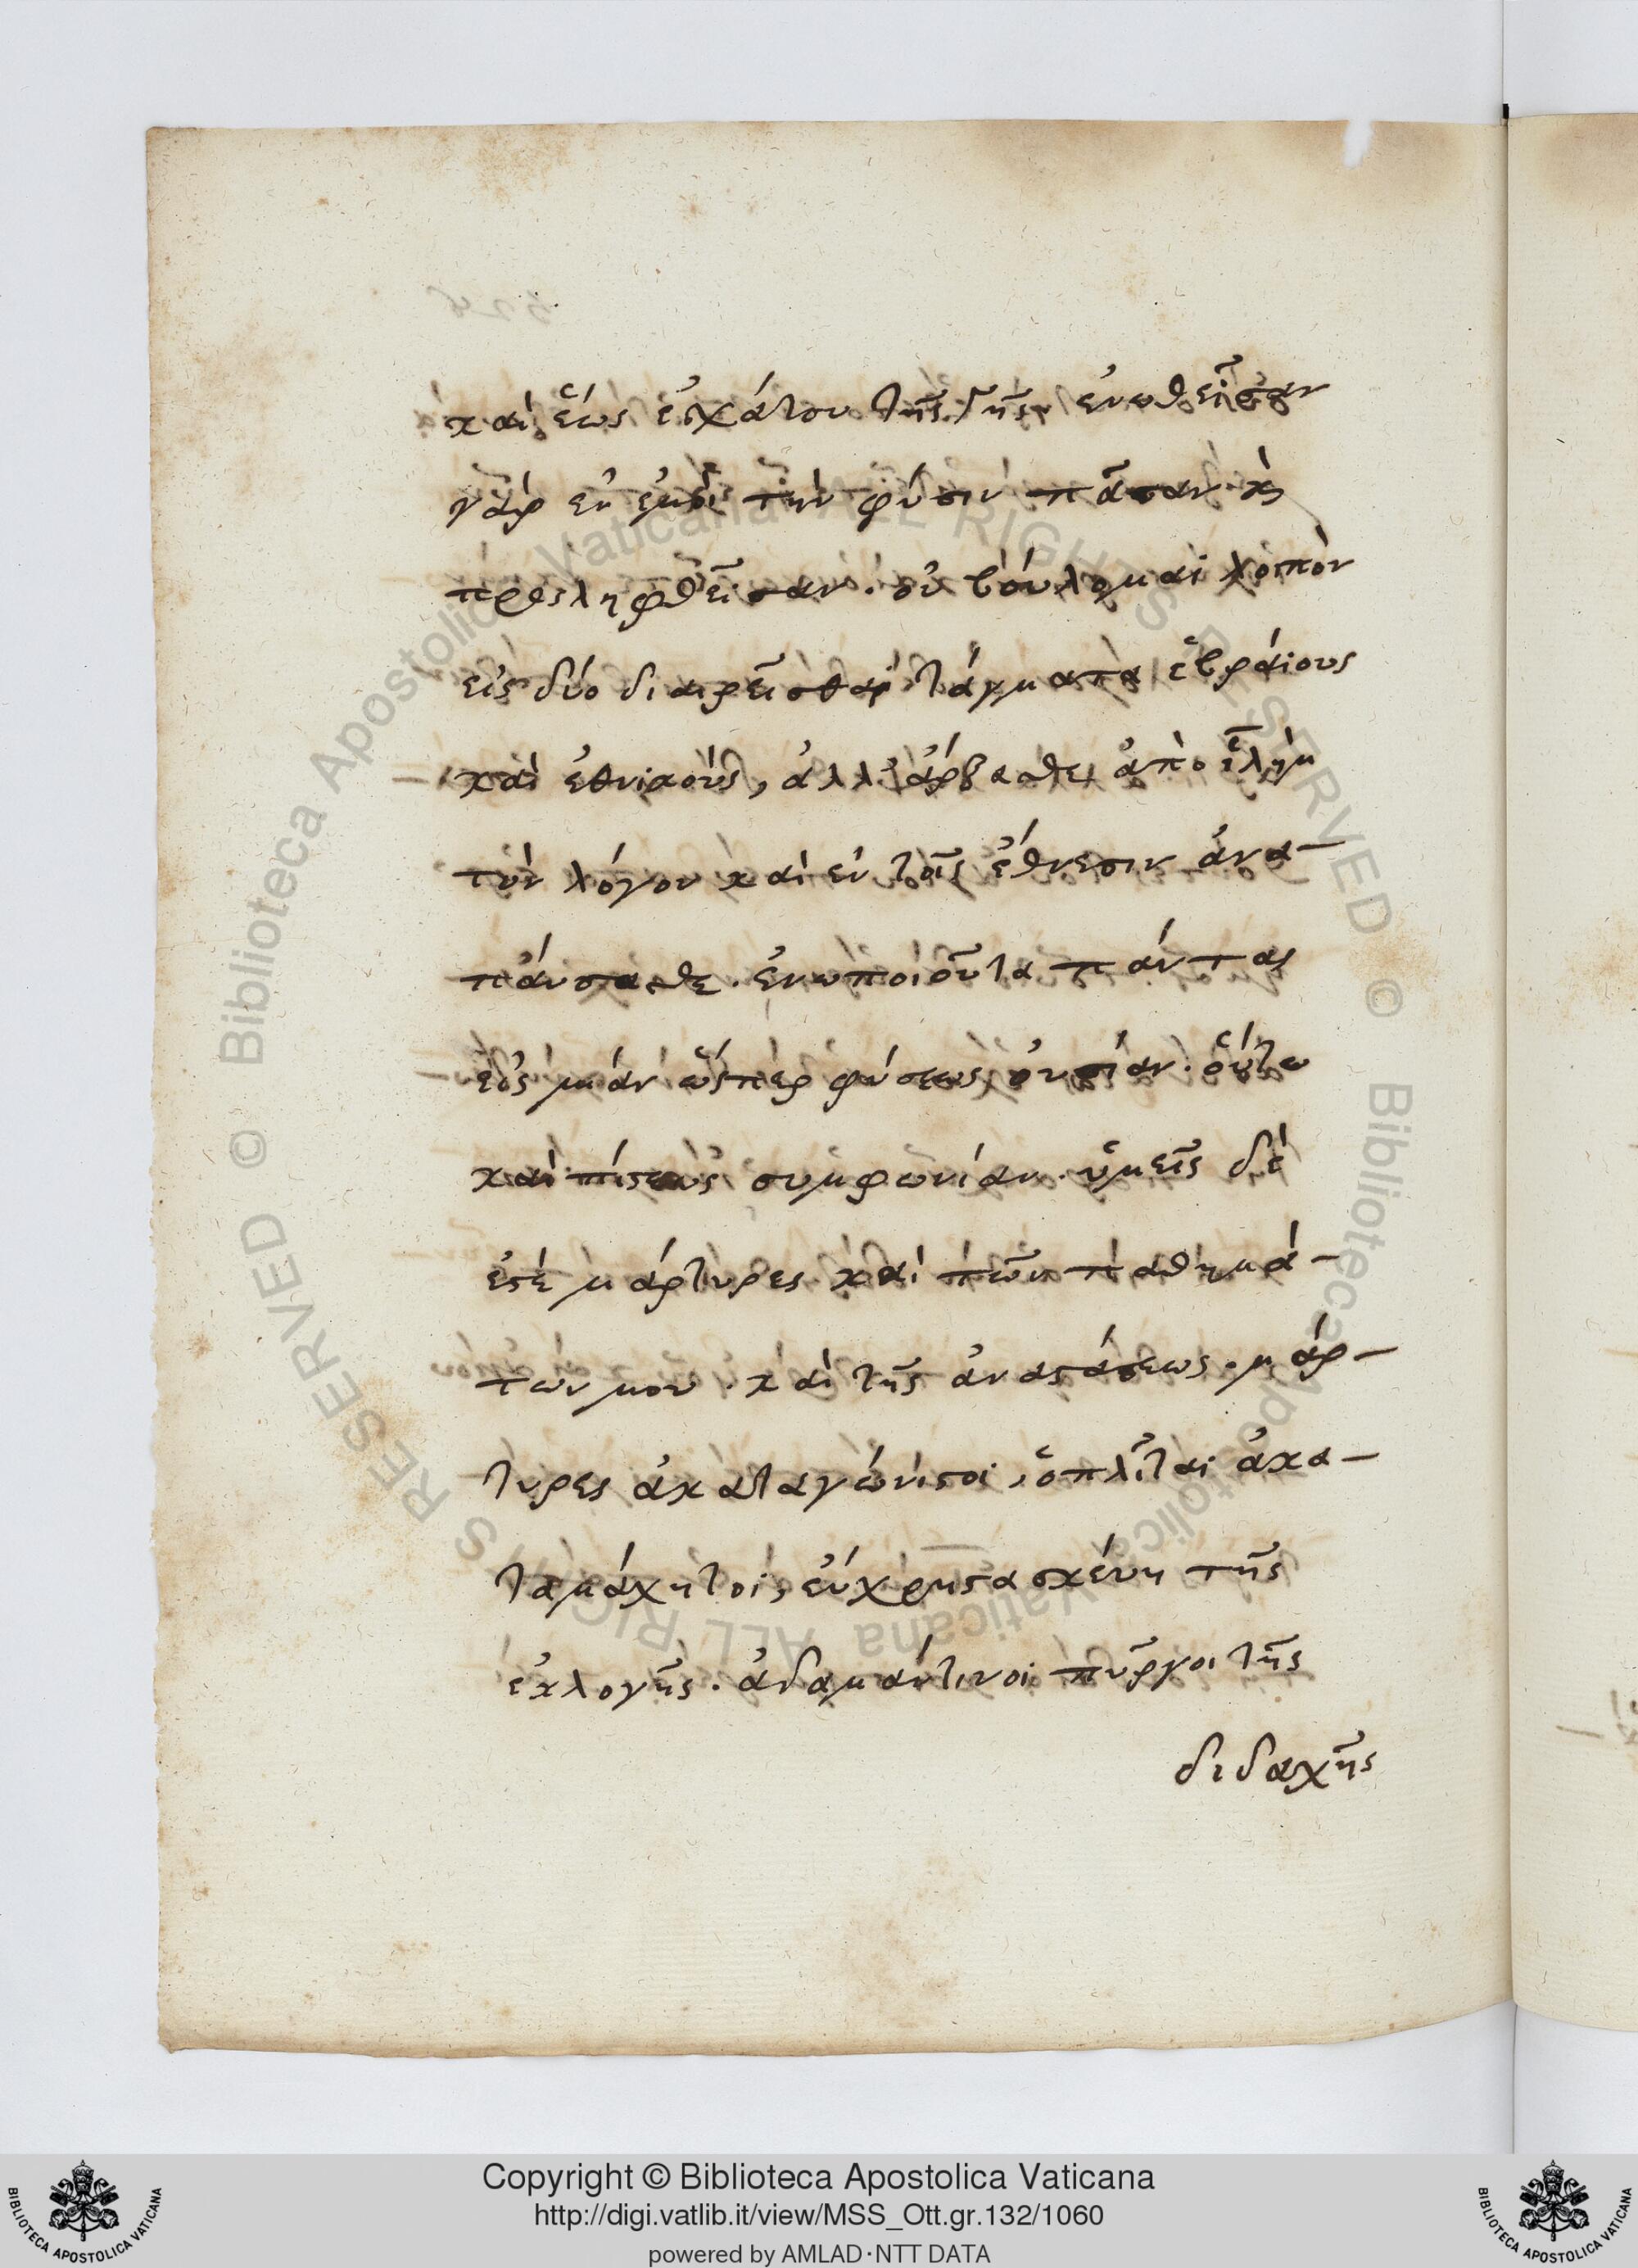 καὶ ἕως ἐσχάτου τῆς γῆς. ἑνωθεῖσαν
γὰρ ἐν ἐμοὶ τὴν φύσιν πᾶσαν κ̀
προσληφθεῖσαν. οὐ βούλομαι λοιπὸν
εἰς δύο διαιρεῖσθαι τάγματα ἑβραίους
καὶ ἐθνικούς, ἀλλ' ἄρξασθε ἀπὸ ἱ̅λ̅ὴ̅μ̅
τὸν λόγον καὶ ἐν τοῖς ἔθνεσιν ἀνα-
πάυσασθε. ἑνωποιοῦντα πάντας
εἰς μίαν ὥσπερ φύσεως οὐσίαν. οὕτω
καὶ πίστεως συμφωνίαν. ὑμεῖς δὲ
ἐστὲ μάρτυρες καὶ τῶν παθημά-
των μου. καὶ τῆς ἀναστάσεως. μάρ-
τυρες ἀκαταγώνιστοι, ὁπλῖται ἀκα-
ταμάχητοι, εὔχρηστα σκέυη τῆς
ἐκλογῆς. ἀδαμάντινοι πῦργοι τῆς
διδαχῆς
Biblioteca Apostolica Vaticana ALL RIGHTS RESERVED ©
Biblioteca Apostolica Vaticana ALL RIGHTS RESERVED ©
Copyright © Biblioteca Apostolica Vaticana
http://digi.vatlib.it/view/MSS_Ott.gr.132/1060
powered by AMLAD·NTT DATA
BIBLIOTECA APOSTOLICA VATICANA
BIBLIOTECA APOSTOLICA VATICANA